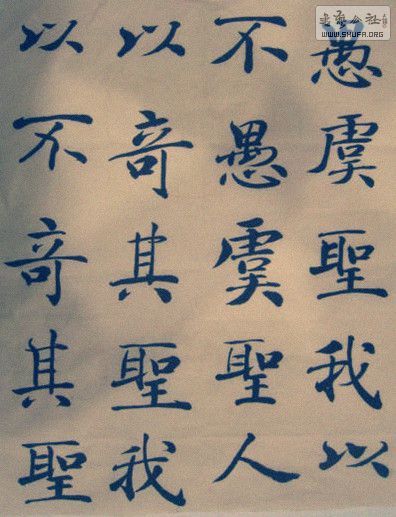 愚虞聖我以
不愚虞聖人
以奇其聖我
以不奇其聖
公社
WWW.SHUFA.ORG